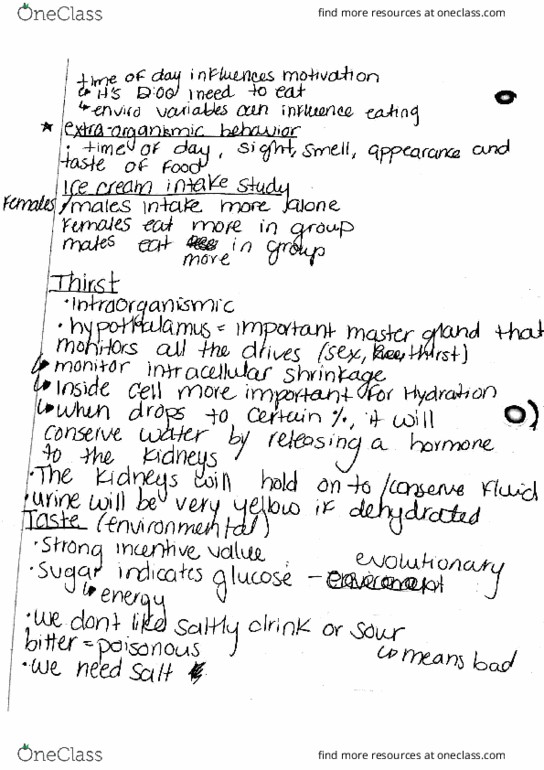 OneClass
find more resources at oneclass.com
time of day influences motivation
↳ It's 12:00 I need to eat
↳ enviro variables can influence eating
★ extra-organismic behavior
: time of day, sight, smell, appearance and
taste of food
Ice cream intake study
Females/males intake more alone
Females eat more in group
males eat in group
more
Thirst
• intraorganismic
• hypothalamus = important master gland that
monitors all the drives (sex, thirst)
↳ monitor intracellular shrinkage
↳ Inside cell more important for Hydration
↳ when drops to certain %, it will
conserve water by releasing a hormone
to the kidneys
• The kidneys will hold on to/conserve fluid
• urine will be very yellow if dehydrated
Taste (environmental)
• Strong incentive value
evolutionary
• Sugar indicates glucose –
↳ energy
• we dont like saltly drink or sour
bitter = poisonous
↳ means bad
• we need salt
OneClass
find more resources at oneclass.com